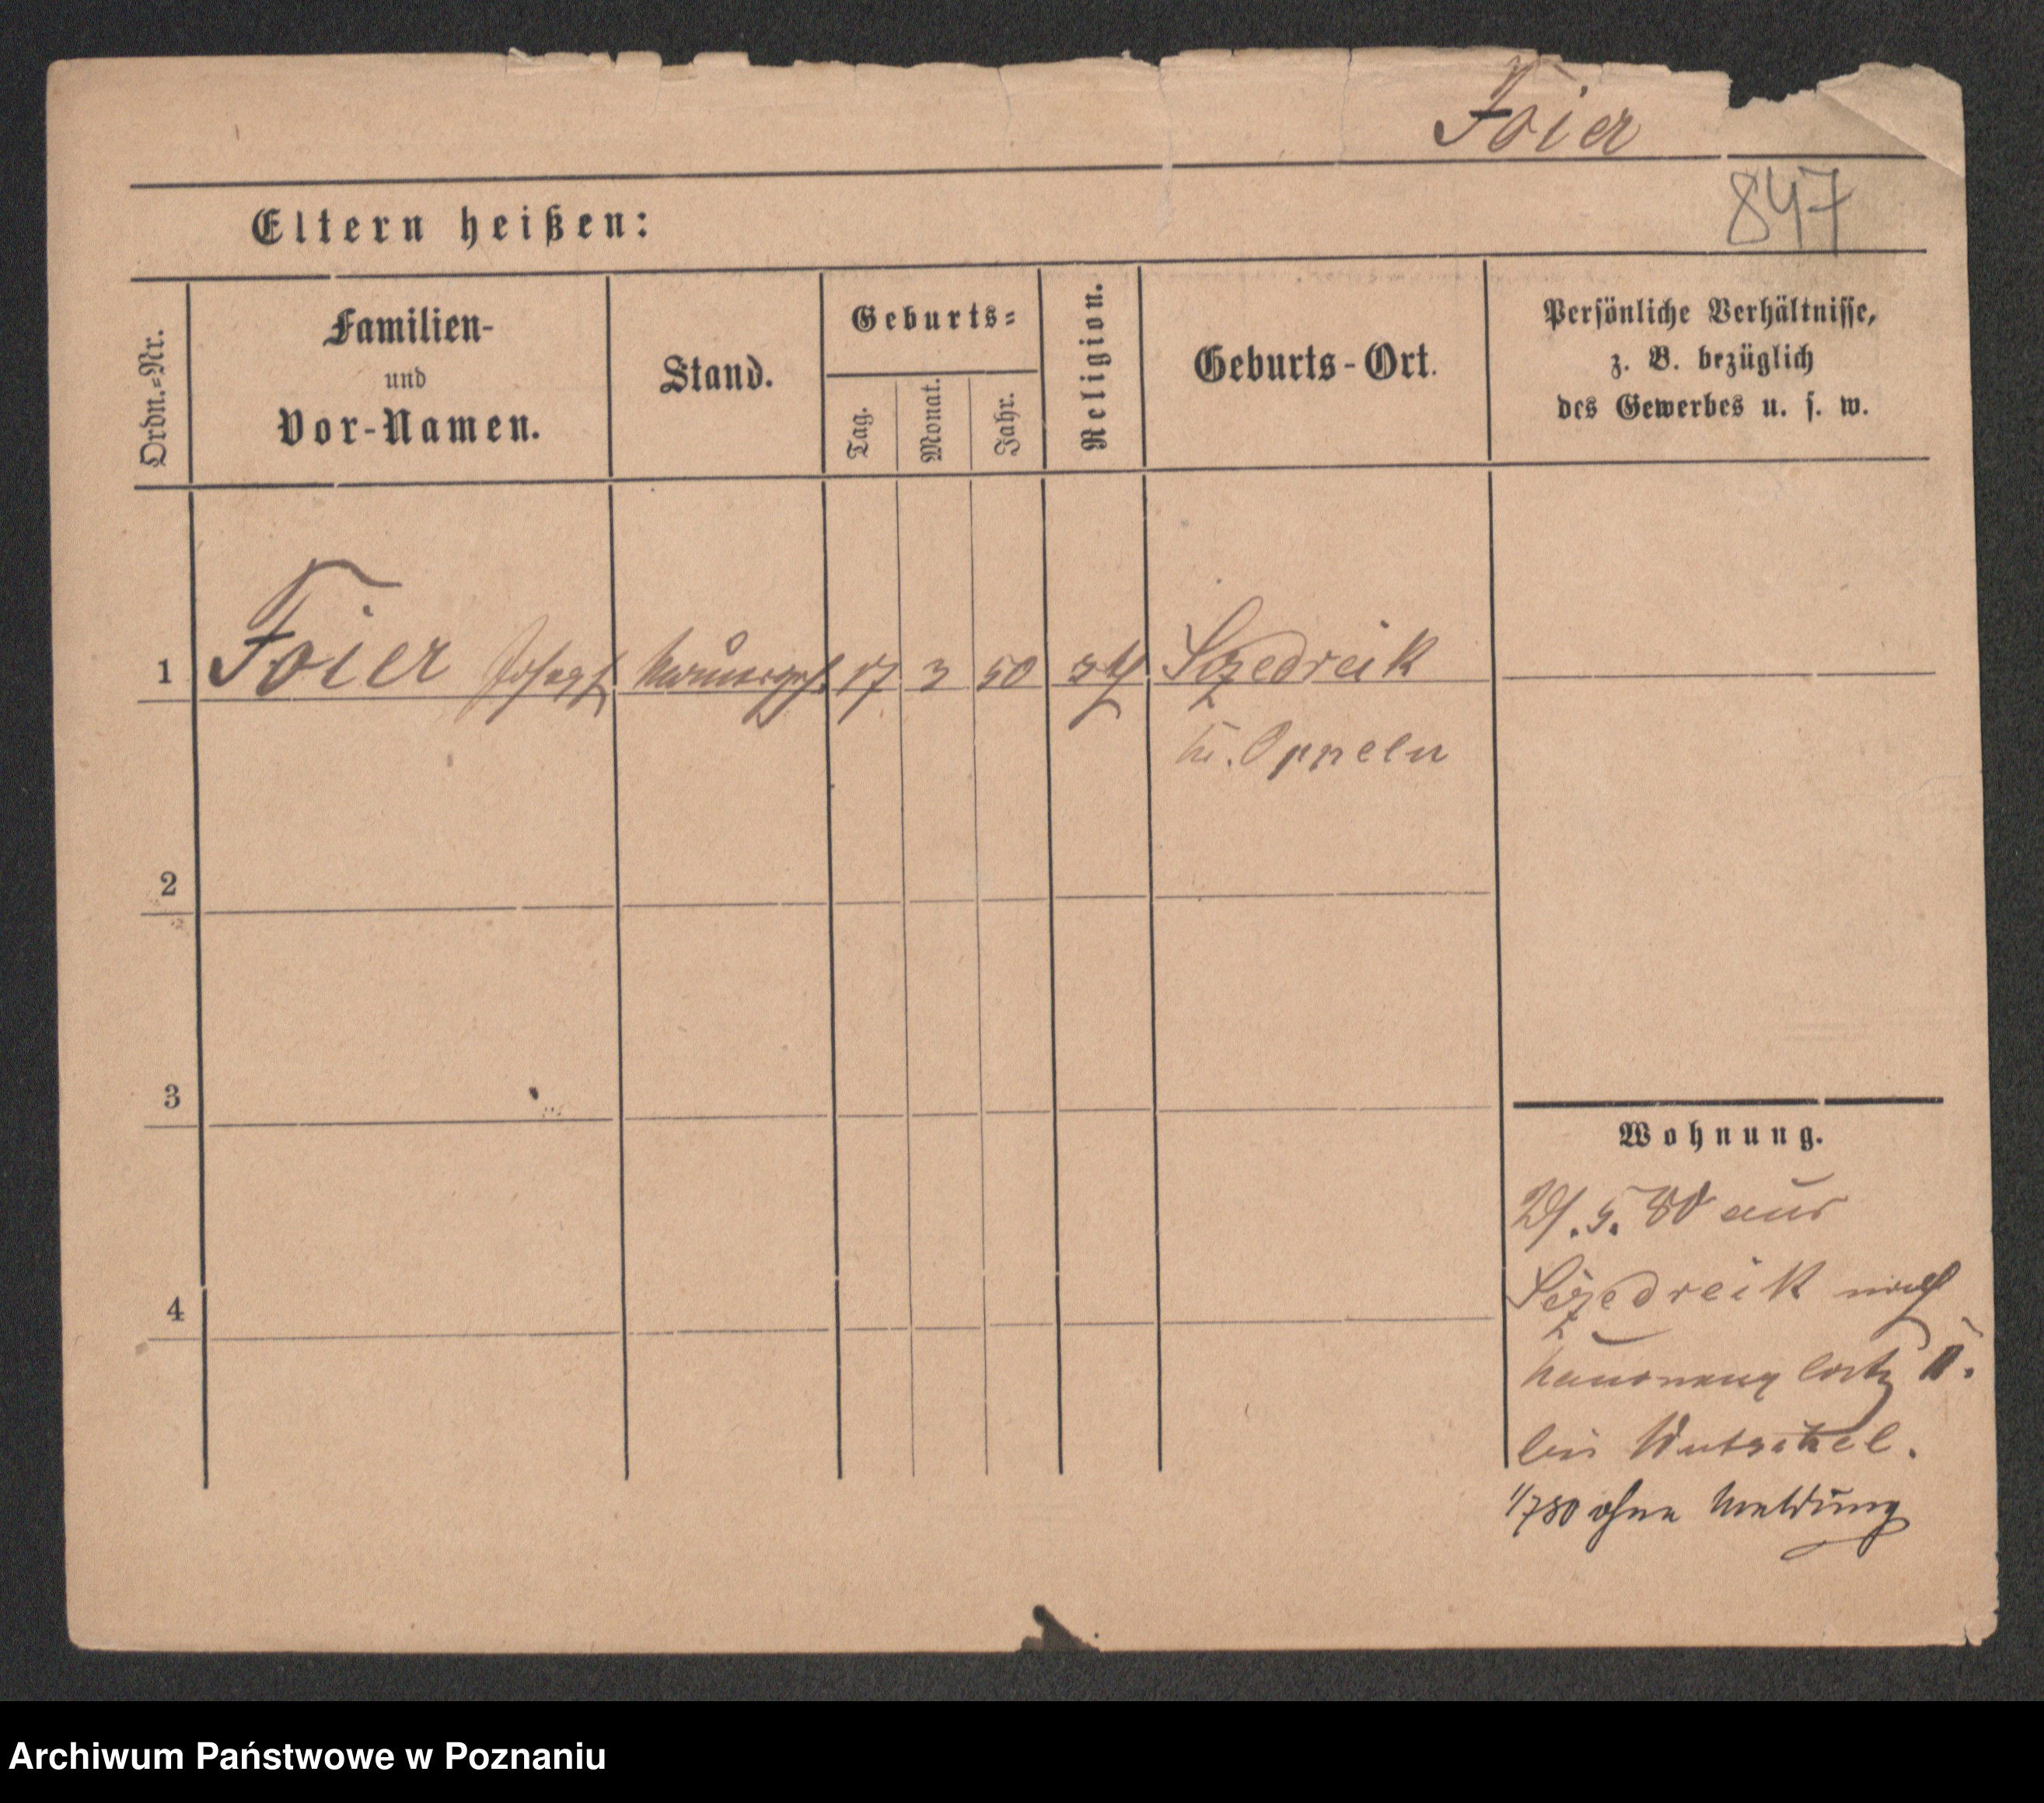 Foier
847
Eltern heißen:
Ordn.=Nr.
Familien-
und
Vor-Namen.
Stand.
Geburts=
Tag.
Monat.
Jahr.
Religion.
Geburts-Ort.
Persönliche Verhältnisse,
z. B. bezüglich
des Gewerbes u. s. w.
1 Foier Joseph Maurerges. 17 3 50 kth Sczedreik
Kr. Oppeln
2
3
4
Wohnung.
5. 80 aus
Sczedreik nach
II.
bei
1/7 80 ohne Meldung
Archiwum Państwowe w Poznaniu